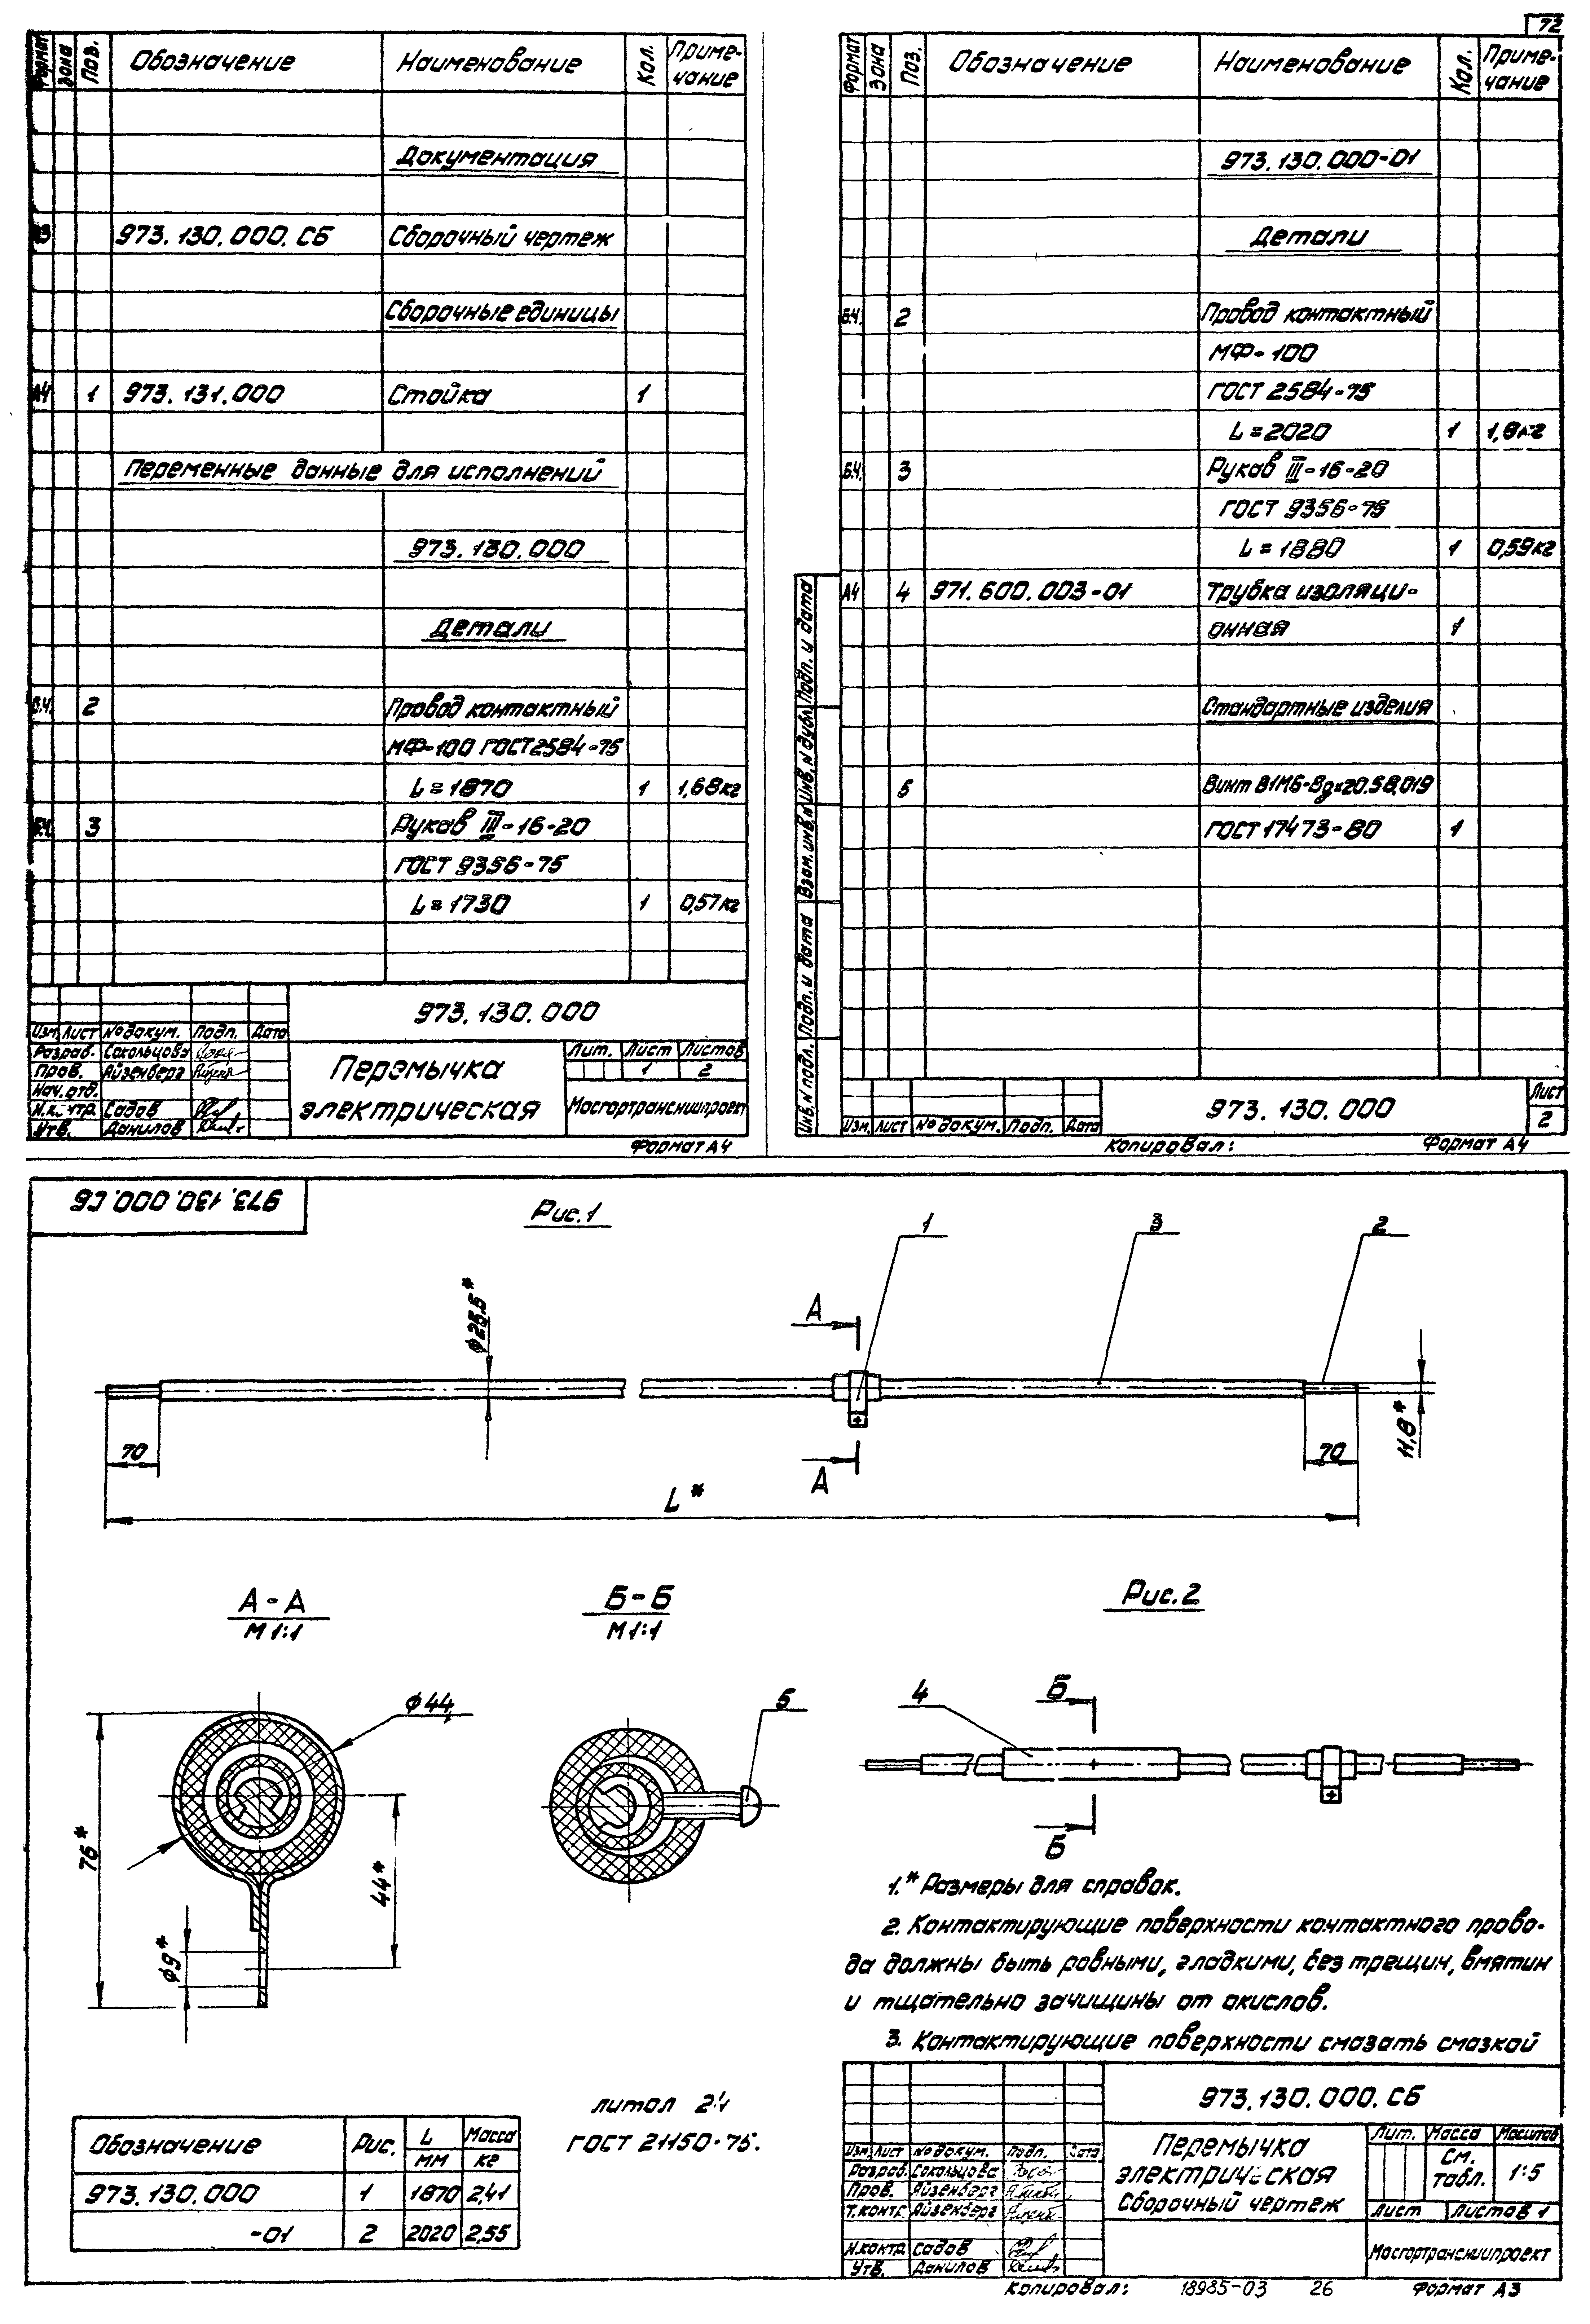 72
Формат Зона Поз. Обозначение Наименование Кол. Приме-
чание
Документация
А3 973.130.000.СБ Сборочный чертеж
Сборочные единицы
А4 1 973.131.000 Стойка 1
Переменные данные для исполнений
973.130.000
Детали
Б.Ч. 2 Провод контактный
МФ-100 ГОСТ 2584-75
L=1870 1 1,68кг
Б.Ч. 3 Рукав III-16-20
ГОСТ 9356-75
L=1730 1 0,57кг
973.130.000
Изм. Лист № докум. Подп. Дата
Разраб. Сокольцова
Пров. Айзенберг
Нач. отд.
Н.контр. Садов
Утв. Данилов
Перемычка
электрическая
Лит. Лист Листов
1 2
Мосгортрансниипроект
Формат А4
Формат Зона Поз. Обозначение Наименование Кол. Приме-
чание
973.130.000-01
Детали
Б.Ч. 2 Провод контактный
МФ-100
ГОСТ 2584-75
L=2020 1 1,8кг
Б.Ч. 3 Рукав III-16-20
ГОСТ 9356-75
L=1880 1 0,59кг
А4 4 971.600.003-01 Трубка изоляци-
онная 1
Стандартные изделия
5 Винт В1М6-8gх20.58.019
ГОСТ 17473-80 1
Инв. № подл. Подп. и дата Взам. инв. № Инв. № дубл. Подп. и дата
Изм. Лист № докум. Подп. Дата
973.130.000
Лист
2
Копировал: Формат А4
973.130.000.СБ
Рис.1
1 3 2
А
φ25,5*
11,8*
70 70
А
L*
А-А
М1:1
Б-Б
М1:1
Рис.2
φ44
5
4
Б
76*
44*
φ9*
Б
1.* Размеры для справок.
2. Контактирующие поверхности контактного прово-
да должны быть ровными, гладкими, без трещин, вмятин
и тщательно зачищины от окислов.
3. Контактирующие поверхности смазать смазкой
литол 24
ГОСТ 21150-75.
Обозначение Рис. L Масса
мм кг
973.130.000 1 1870 2,41
-01 2 2020 2,55
973.130.000.СБ
Изм. Лист № докум. Подп. Дата
Разраб. Сокольцова
Пров. Айзенберг
Т.контр. Айзенберг
Н.контр. Садов
Утв. Данилов
Перемычка
электрическая
Сборочный чертеж
Лит. Масса Масштаб
см.
табл. 1:5
Лист Листов 1
Мосгортрансниипроект
Копировал: 18985-03 26 Формат А3